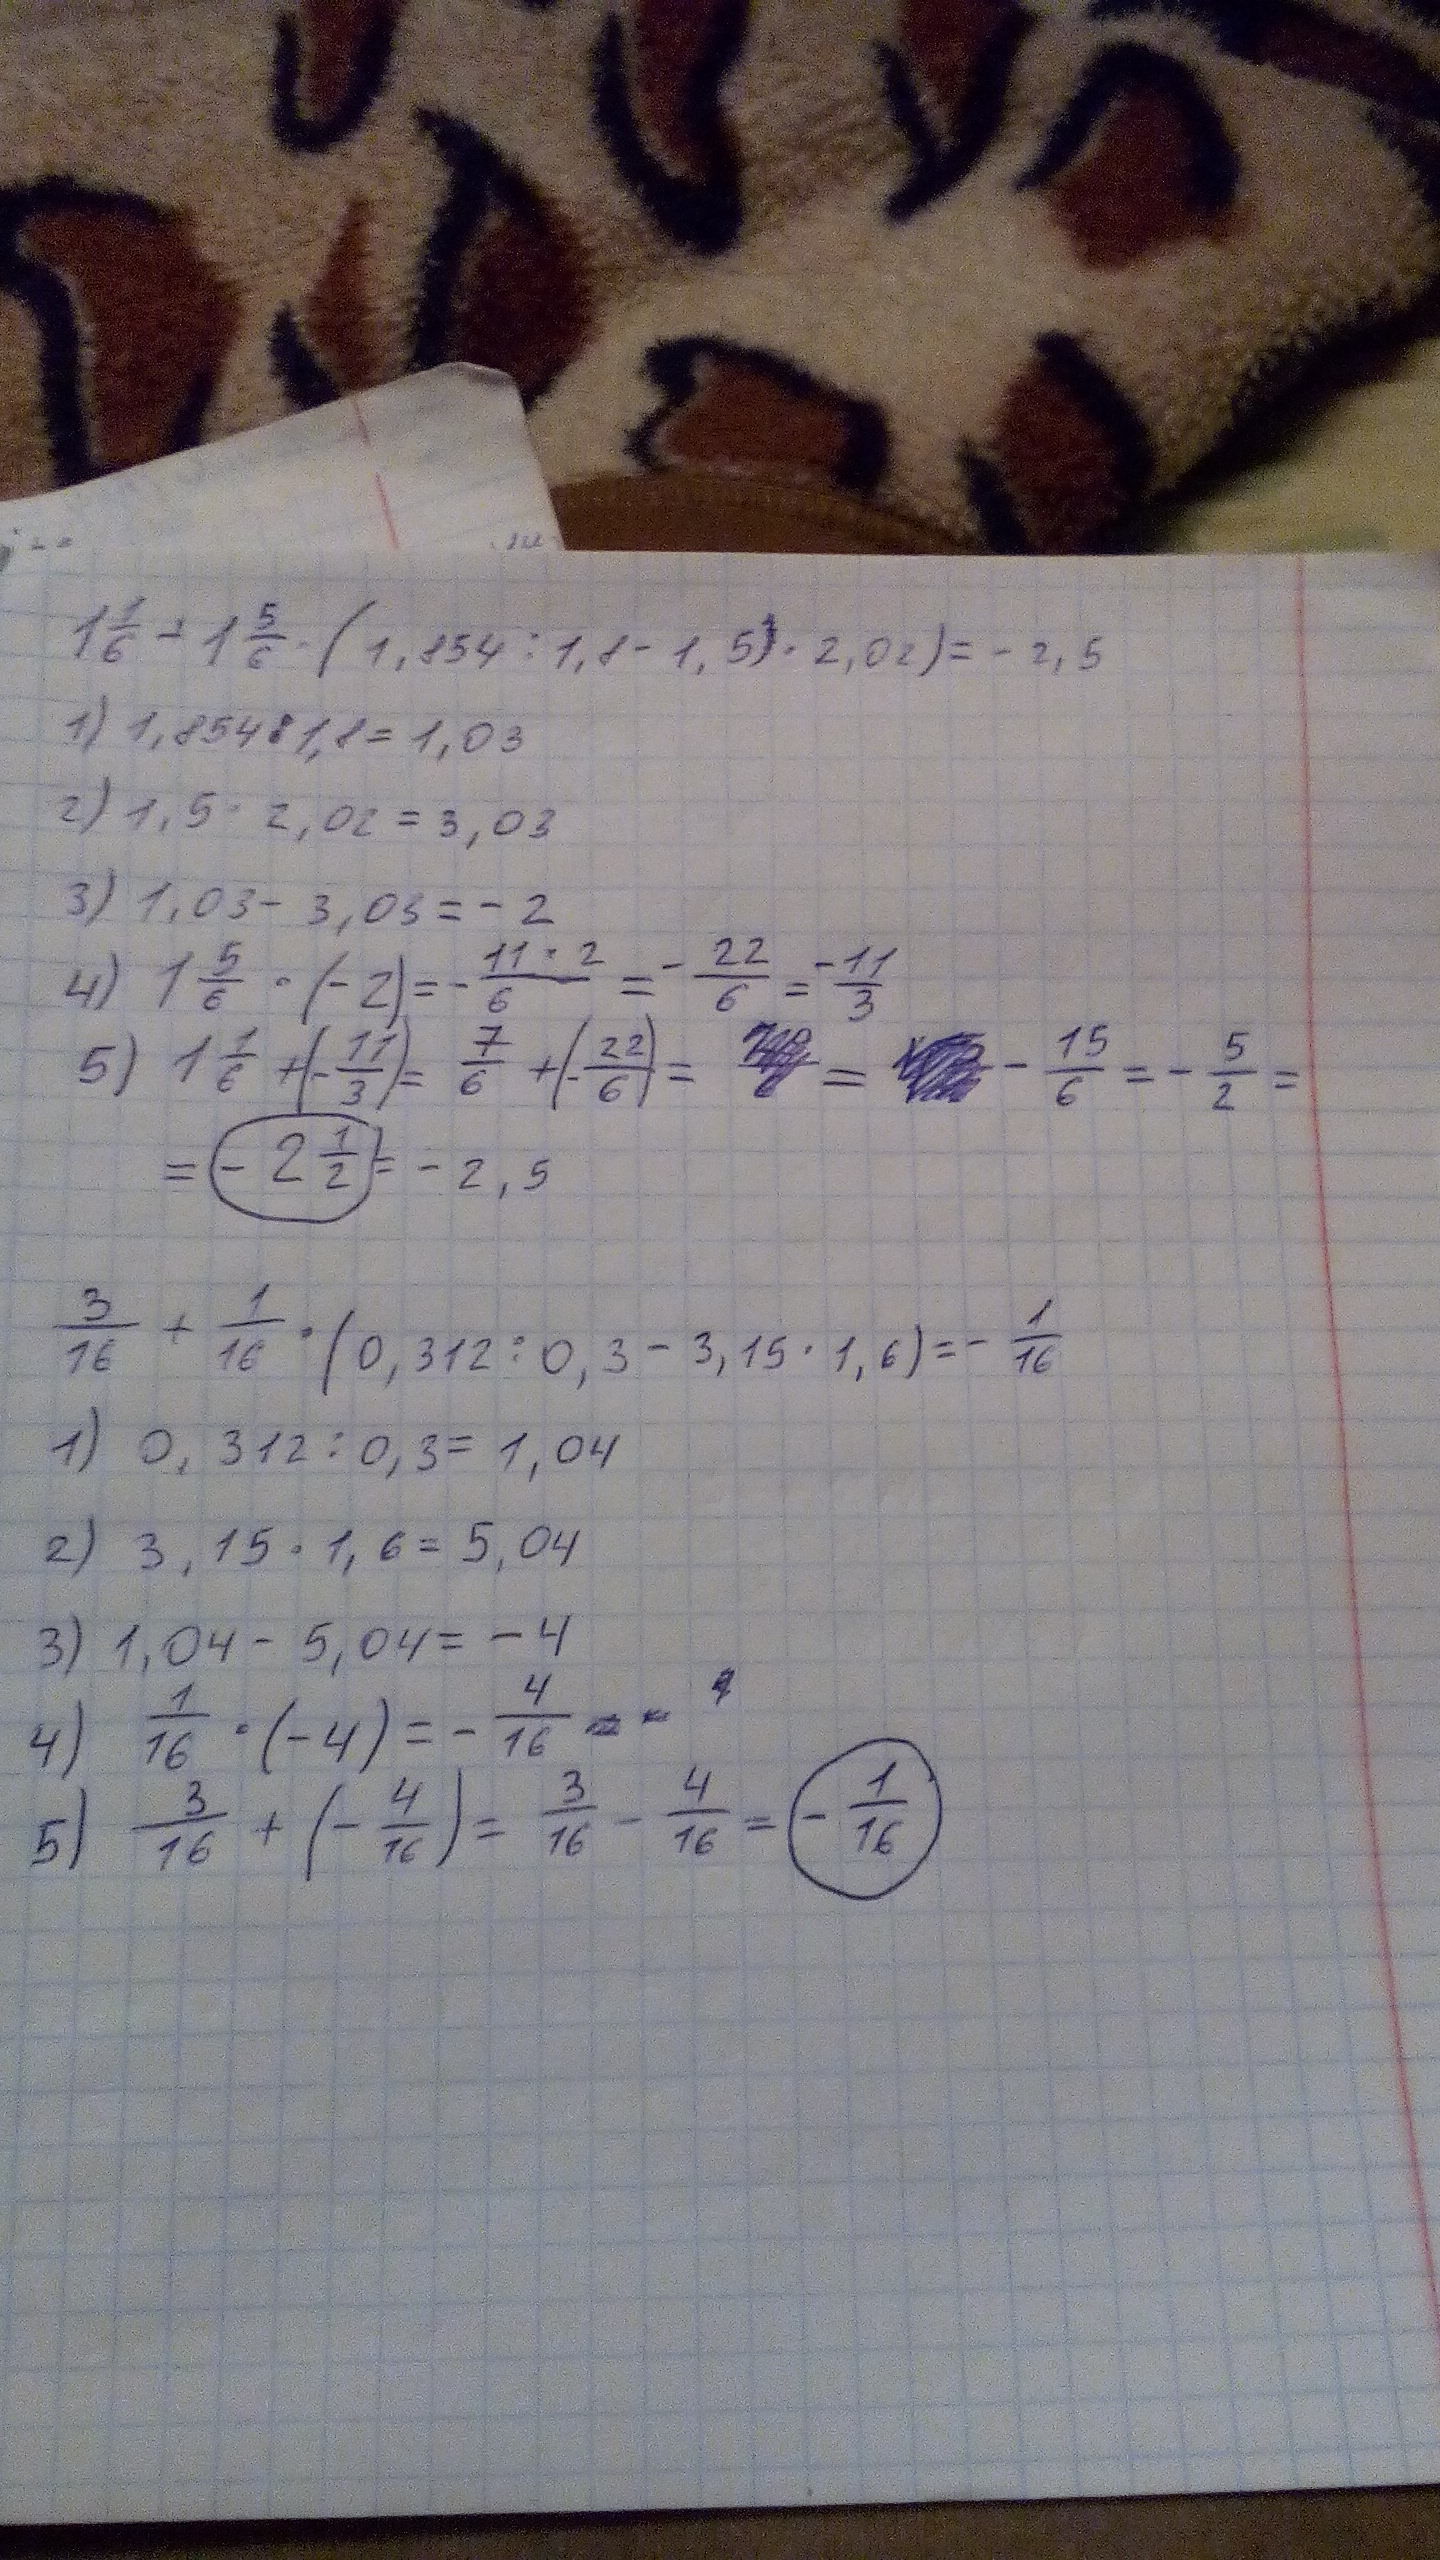 1 1/6 + 1 5/6 · (1,854 : 1,8 - 1,5 · 2,02) = - 2,5
1) 1,854 : 1,8 = 1,03
2) 1,5 · 2,02 = 3,03
3) 1,03 - 3,03 = - 2
4) 1 5/6 · (- 2) = - 11 · 2/6 = - 22/6 = - 11/3
5) 1 1/6 + (- 11/3) = 7/6 + (- 22/6) = = - 15/6 = - 5/2 =
= - 2 1/2 = - 2,5
3/16 + 1/16 · (0,312 : 0,3 - 3,15 · 1,6) = - 1/16
1) 0,312 : 0,3 = 1,04
2) 3,15 · 1,6 = 5,04
3) 1,04 - 5,04 = - 4
4) 1/16 · (- 4) = - 4/16
5) 3/16 + (- 4/16) = 3/16 - 4/16 = - 1/16